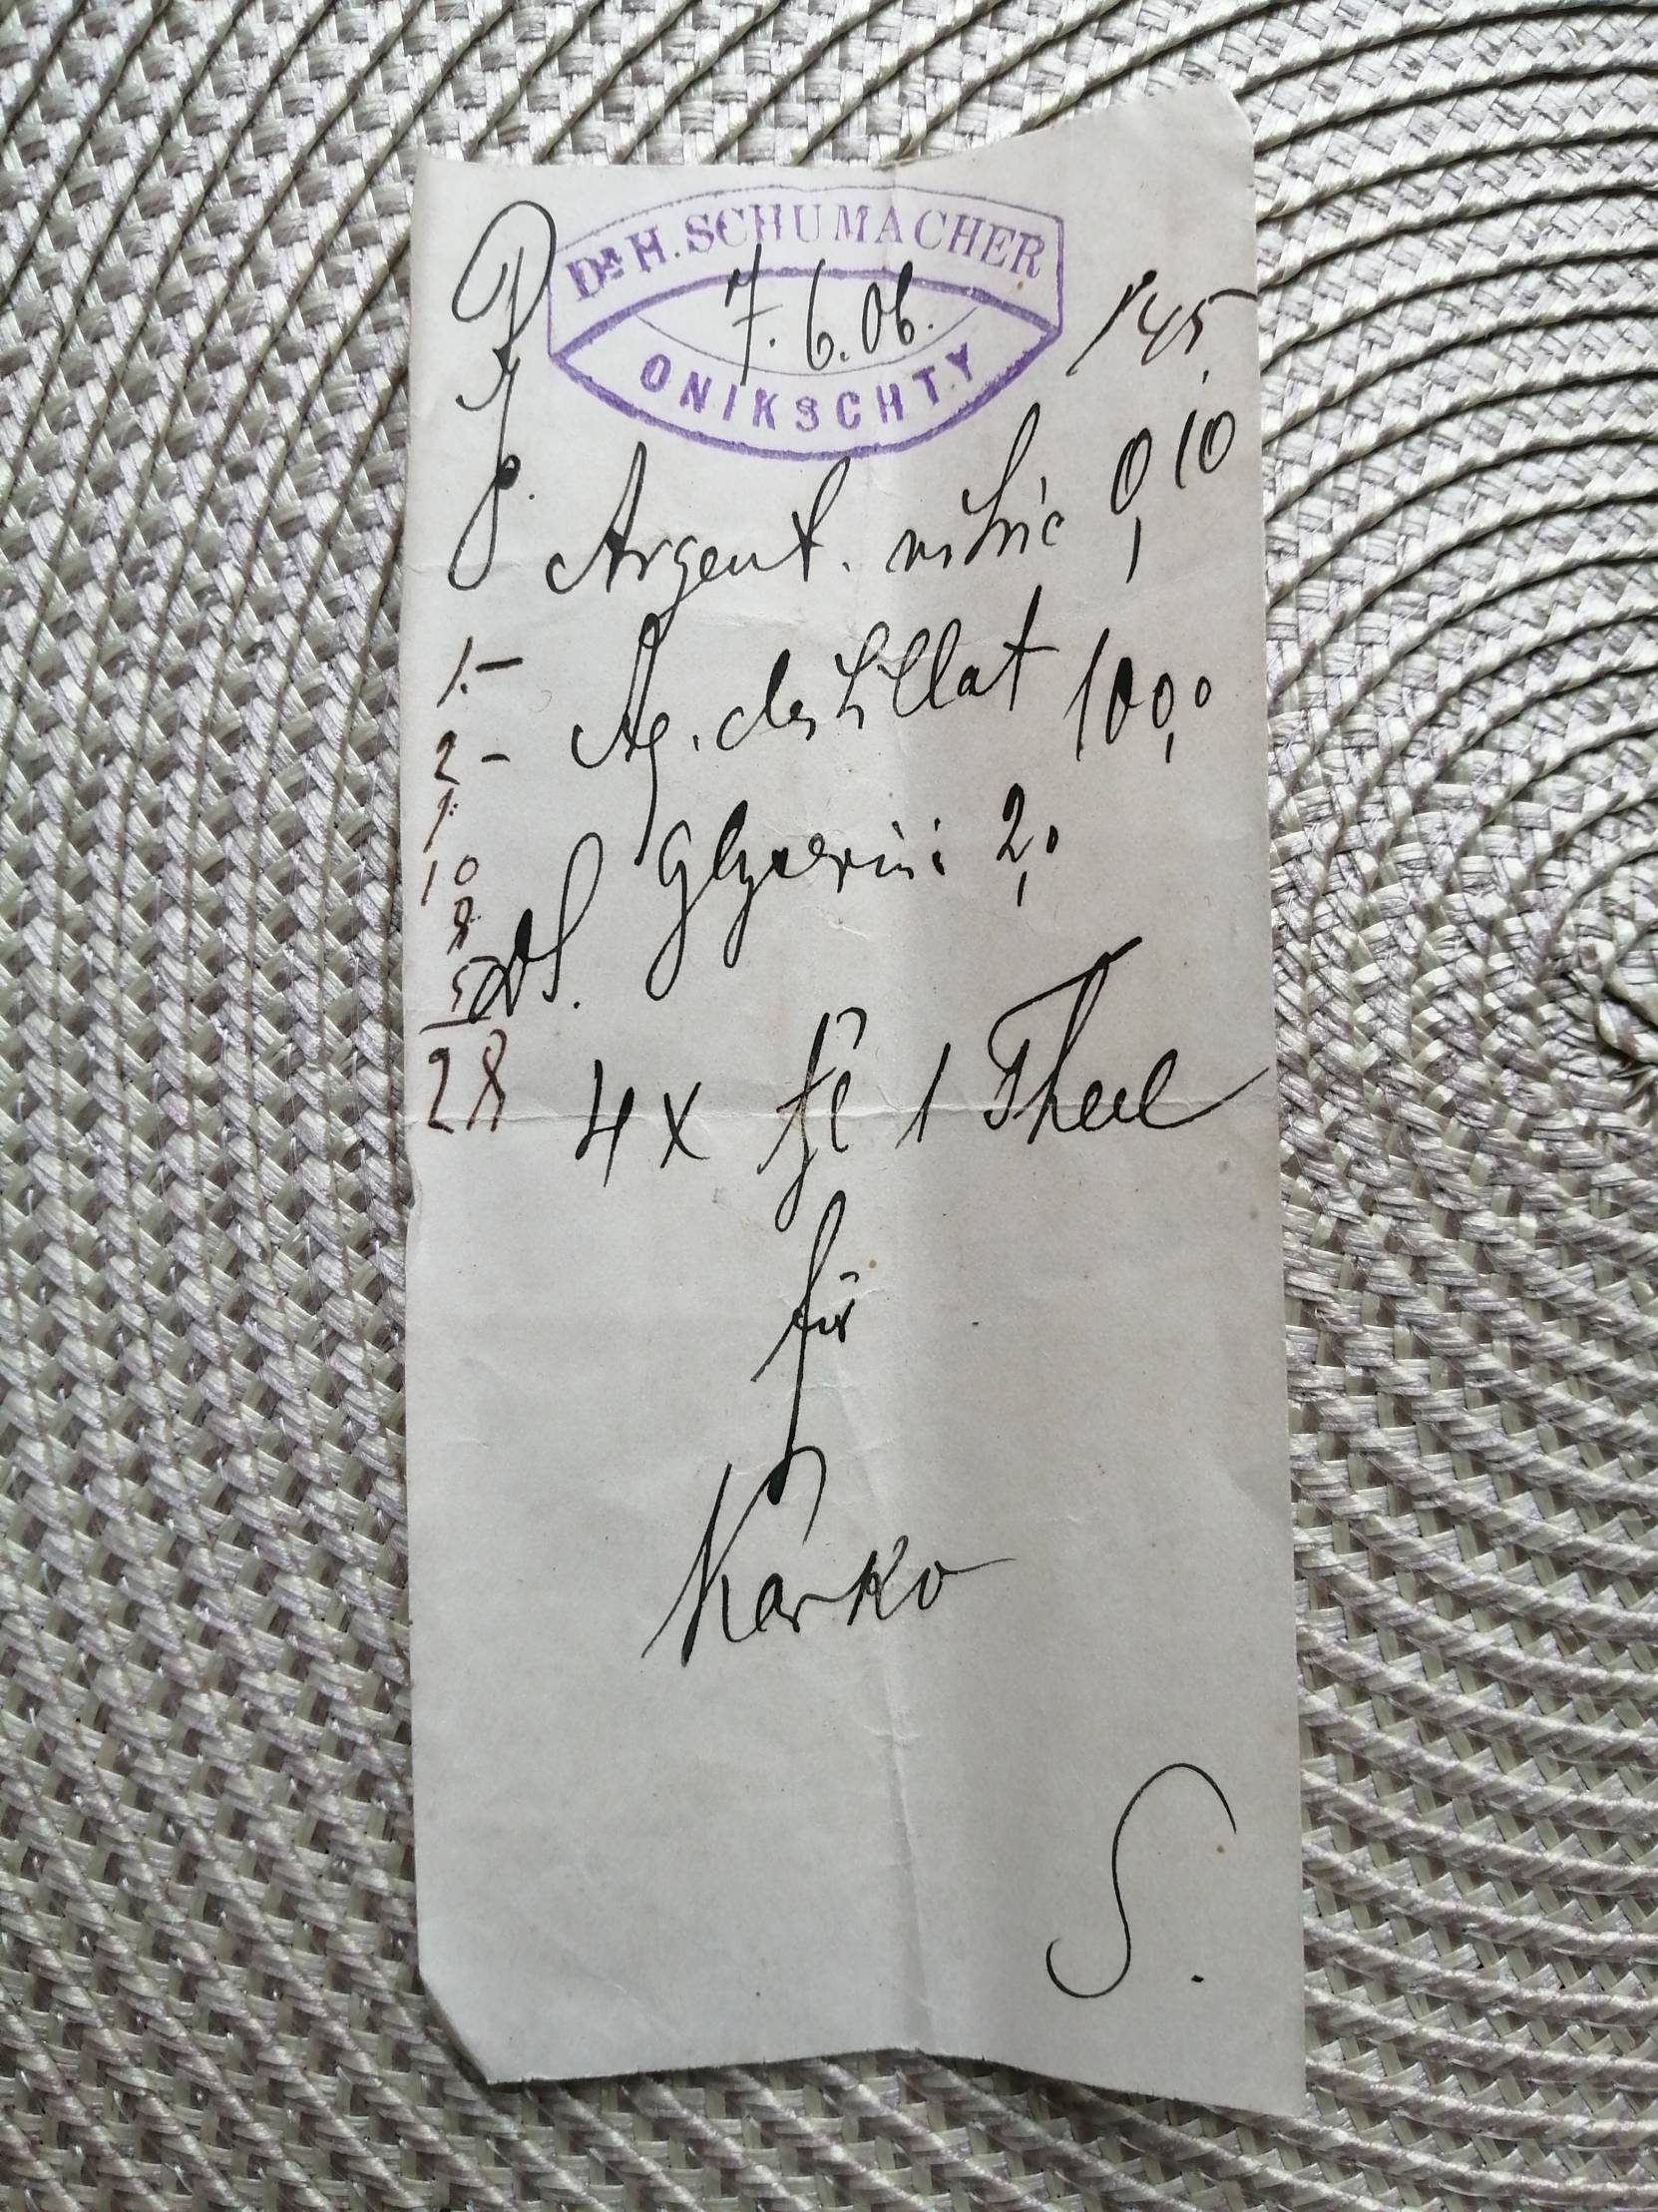 Dr H. SCHUMACHER
7. 6. 06.
ONIKSCHTY
Rp.
145
Argent. nitric 0,10
1.–
Aq. destillat 100,0
2 –
1.
Glycerini 2,0
10
8
5
DS.
28
4 x tgl 1 Theel
für
Karko
S.